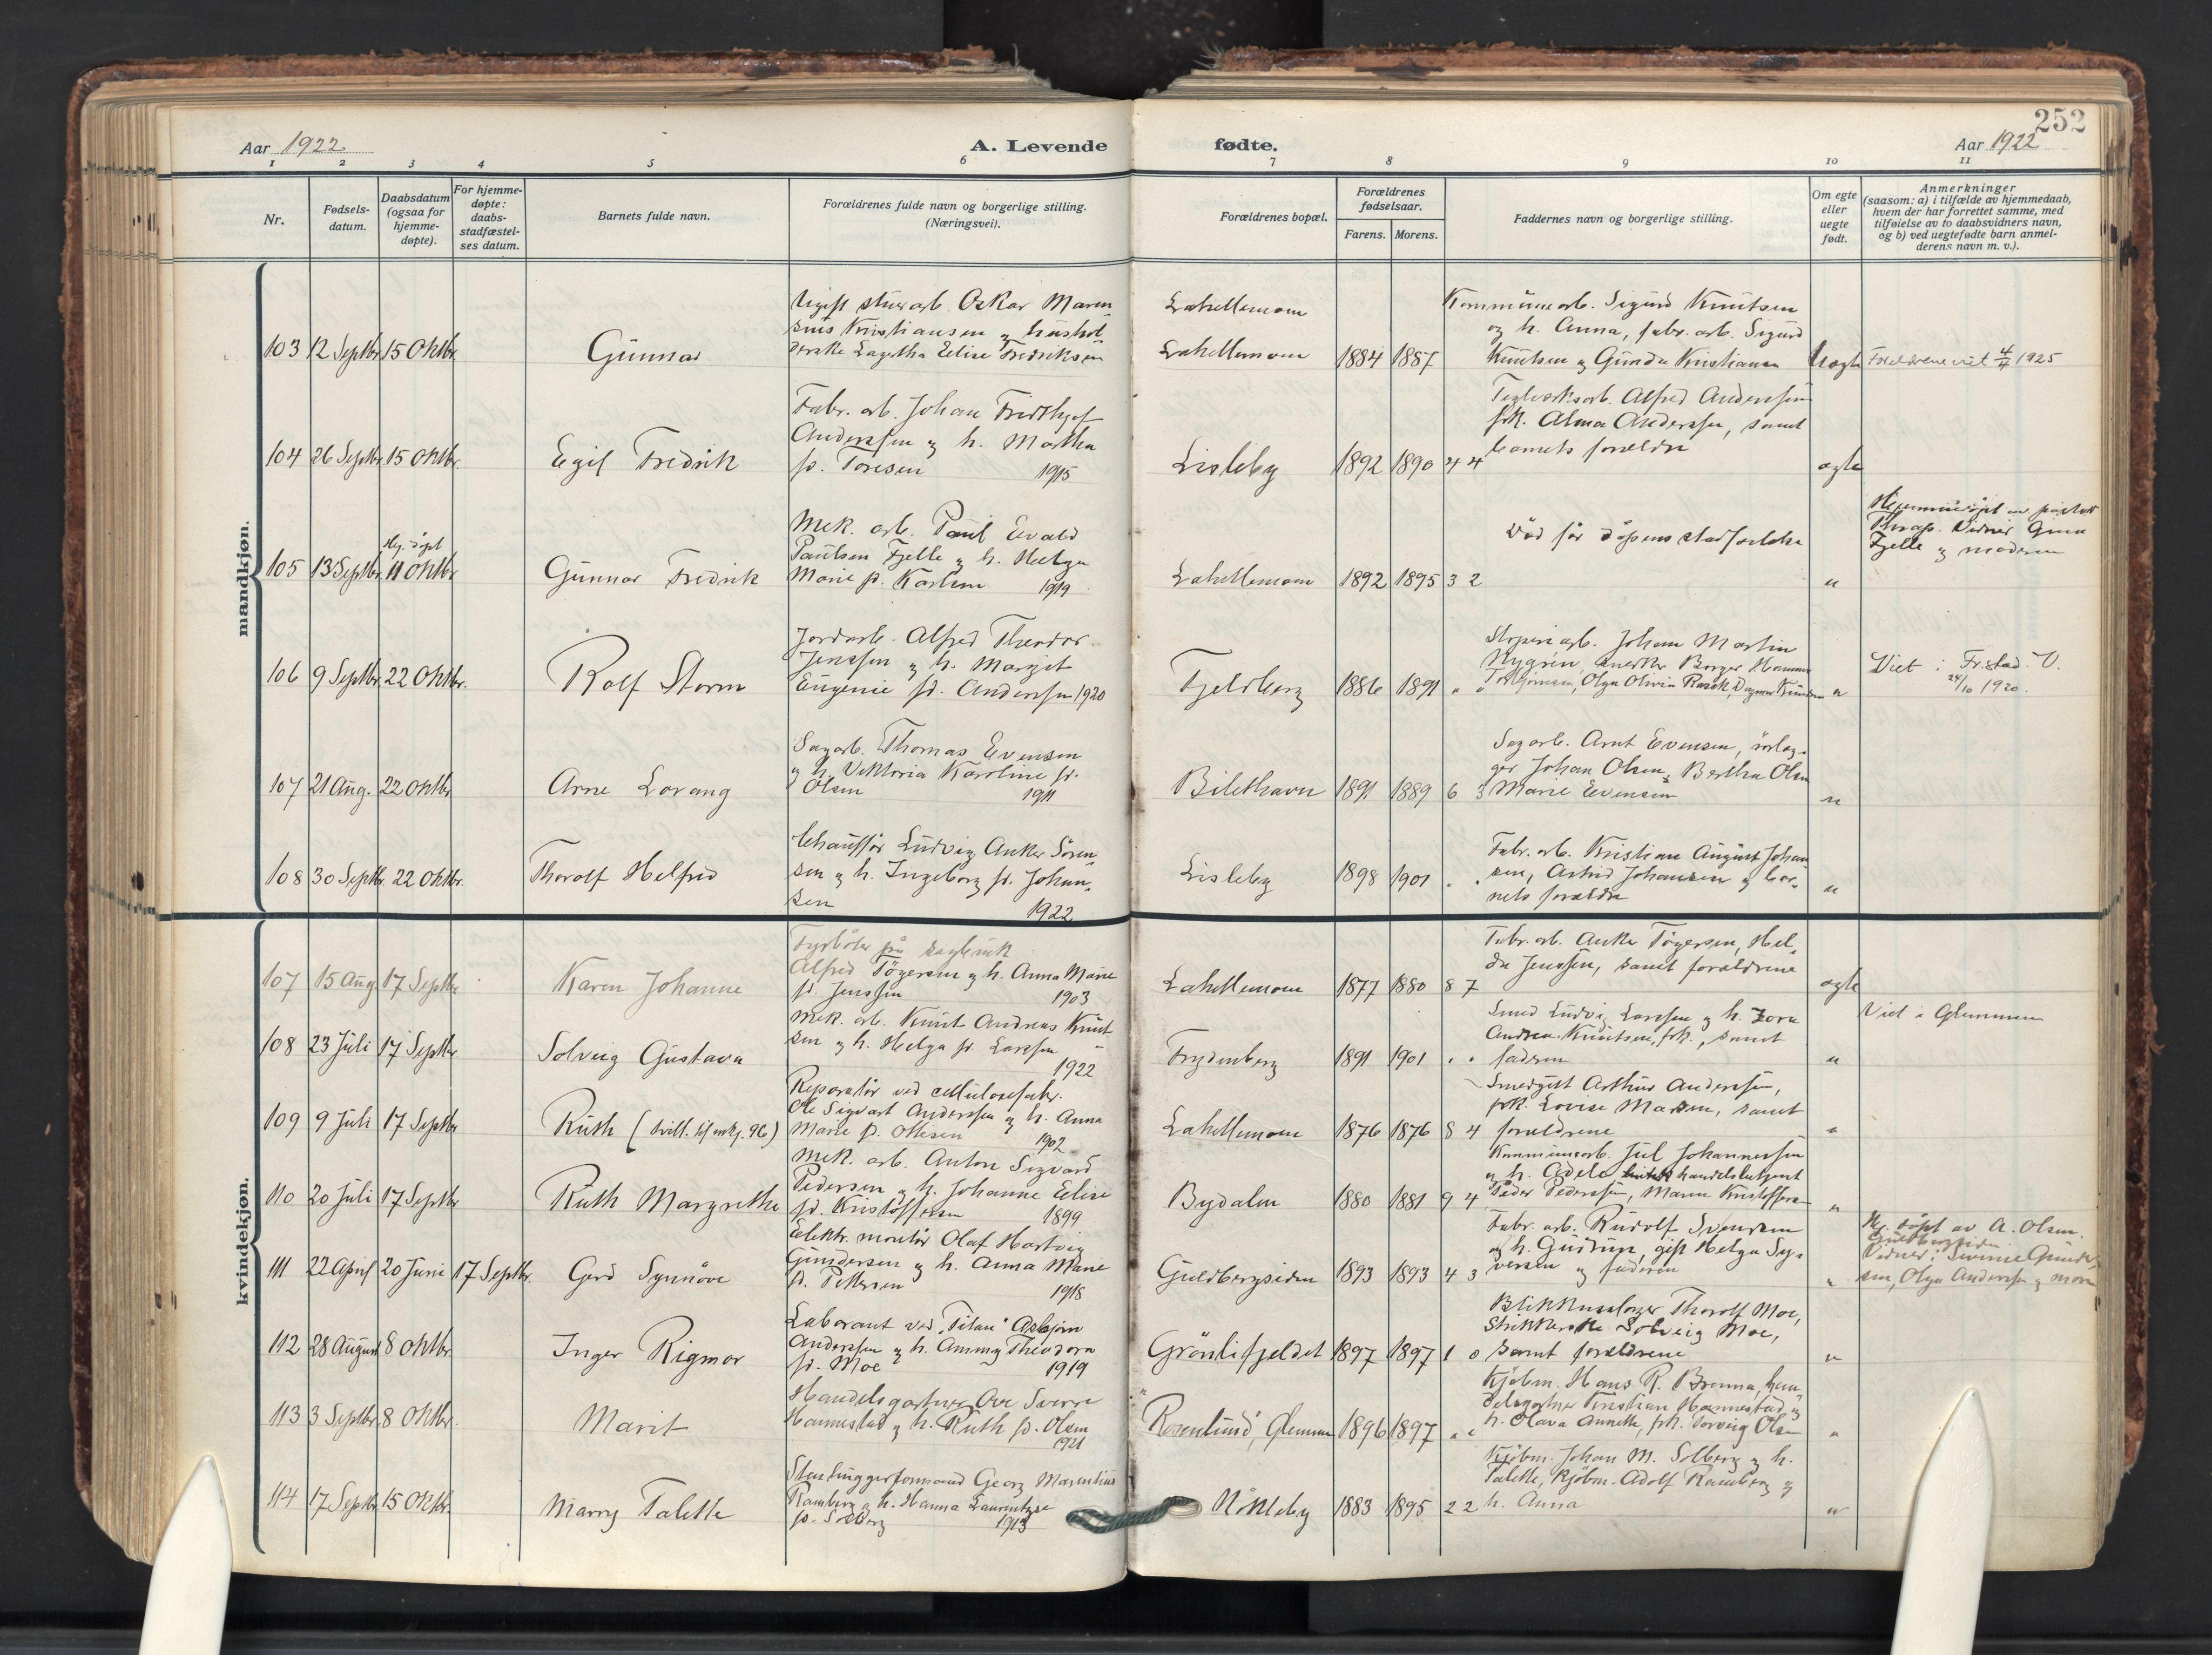 252
Aar 1922
A. Levende
fødte.
Aar 1922
1 2 3 4 5 6 7 8 9 10 11
Nr.
Fødsels-
datum.
Daabsdatum
(ogsaa for
hjemme-
døpte).
For hjemme-
døpte:
daabs-
stadfæstel-
ses datum.
Barnets fulde navn.
Forældrenes fulde navn og borgerlige stilling.
(Næringsvei).
Forældrenes bopæl.
Forældrenes
fødselsaar.
Farens. Morens.
Faddernes navn og borgerlige stilling.
Om egte
eller
uegte
født.
Anmerkninger
(saasom: a) i tilfælde av hjemmedaab,
hvem der har forrettet samme, med
tilføielse av to daabsvidners navn,
og b) ved uegtefødte barn anmel-
derens navn m. v.).
mandkjøn.
103 12 Septbr. 15 Oktbr. Gunnar
Ugift stuerarb. Oskar Maren-
sius Kristiansen og hushol-
derske Lagertha Elise Fredriksen
Lahellemoen
Lahellemoen 1884 1887
Kommunearb. Sigurd Knutsen
og h. Anna, fabr. arb. Sigurd
Knutsen og Gunda Kristiansen
Uegte Foreldrene viet 4/4 1925
104 26 Septbr. 15 Oktbr. Egil Fredrik
Fabr. arb. Johan Fridthjof
Anderssen og h. Martha
f. Toresen 1915
Lisleby 1892 1890 4 4
Teglverksarb. Alfred Anderssen
frk. Alma Anderssen, samt
barnets forældre
egte
105 13 Septbr. Hj. døpt 11 Oktbr. Gunnar Fredrik
Mek. arb. Paul Evald
Paulsen Fjelle og h. Helga
Marie f. Karlsen 1919
Lahellemoen 1892 1895 3 2
Død før dåpens stadfestelse
"
Hjemmedøpt av pastor
Thrap. Vidner Gina
Fjelle og moderen
106 9 Septbr. 22 Oktbr. Rolf Storm
Jordarb. Alfred Theodor
Jenssen og h. Margit
Eugenie f. Anderssen 1920
Fjeldberg 1886 1891 " "
Sliperiarb. Johan Martin
Nygren, snekker Borger Hammer
Torbjørnsen, Olga Olivia Rasch, Dagmar Knudsen
"
Viet i Fr.stad V.
24/10 1920.
107 21 Aug. 22 Oktbr. Arne Lorang
Sagarb. Thomas Evensen
og h. Viktoria Karoline f.
Olsen 1911
Bilethavn 1891 1889 6 3
Sagarb. Arnt Evensen,
ger Johan Olsen, Bertha Olsen
Marie Evensen
"
108 30 Septbr. 22 Oktbr. Thorolf Helfred
Chauffør Ludvig Anker Søren-
sen og h. Ingeborg f. Johan-
sen 1922
Lisleby 1898 1901 " "
Fabr. arb. Kristian August Johan
sen, Astrid Johansen og bar-
nets forældre
"
kvindekjøn.
107 15 Aug. 17 Septbr. Karen Johanne
Fyrbøter på sagbruk
Alfred Tøgersen og h. Anna Marie
f. Jenssen 1903
Lahellemoen 1877 1880 8 7
Fabr. arb. Anker Tøgersen, Hel-
da Jenssen, samt forældrene
egte
108 23 Juli 17 Septbr. Solveig Gustava
Mek. arb. Knut Andreas Knut-
sen og h. Helga f. Larssen
1922
Frydenberg 1891 1901 " "
Smed Ludvig Larssen og h. Zora
Andrea Knutsen, frk., samt
fadren
"
Viet i Glemmen
109 9 Juli 17 Septbr. Ruth (tvill. til mkj. 96)
Reparatør ved cellulosefabr.
Ole Sigvart Anderssen og h. Anna
Marie f. Ottesen 1902
Lahellemoen 1876 1876 8 4
Smedgut Arthur Anderssen,
frk. Lovise Madsen, samt
forældrene
"
110 20 Juli 17 Septbr. Ruth Margrethe
Mek. arb. Anton Sigvard
Pedersen og h. Johanne Elise
f. Kristoffersen 1899
Bydalen 1880 1881 9 4
Kommunearb. Jul Johannessen
og h. Adele handelsbetjent
Peder Pedersen, Maren Kristoffersen
"
111 22 April 20 Juni 17 Septbr. Gerd Synnøve
Elektr. montør Olaf Hartvig
Gundersen og h. Anna Marie
f. Pettersen 1918
Guldbergsiden 1893 1893 4 3
Fabr. arb. Rudolf Svendsen
og h. Gudrun, gift Helga Sy-
versen og faderen
"
Hj. døpt av A. Olsen.
Guldbergsiden
Vidner: Severine Gunder-
sen, Olga Anderssen og mor
112 28 August 8 Oktbr. Inger Rigmor
Laborant ved "Titan" Asbjørn
Anderssen og h. Ammy Theodora
f. Moe 1919
Grønlifjeldet 1897 1897 1 0
Blikkenslager Thorolf Moe,
Strikkerske Solveig Moe,
samt forældrene
"
113 3 Septbr. 8 Oktbr. Marit
Handelsgartner Ove Sverre
Hannestad og h. Ruth f. Olsen
1921
"Rosenlund", Glemmen 1896 1897 " "
Kjøbm. Hans R. Brenna, han-
delsgartner Kristian Hannestad og
h. Olava Annette, frk. Solveig Olsen
"
114 17 Septbr. 15 Oktbr. Marry Talette
Stenhuggerformand Georg Marentius
Ramberg og h. Hanna Laurentze
f. Solberg 1913
Nøkleby 1883 1895 2 2
Kjøbm. Johan M. Solberg og h.
Talette, Kjøbm. Adolf Ramberg og
h. Anna
"